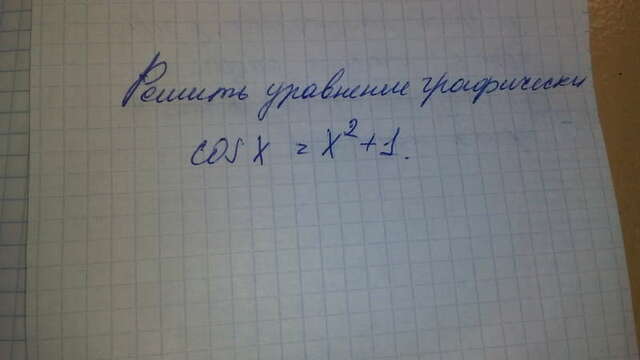 Решить уравнение графически
cos x = x² + 1.